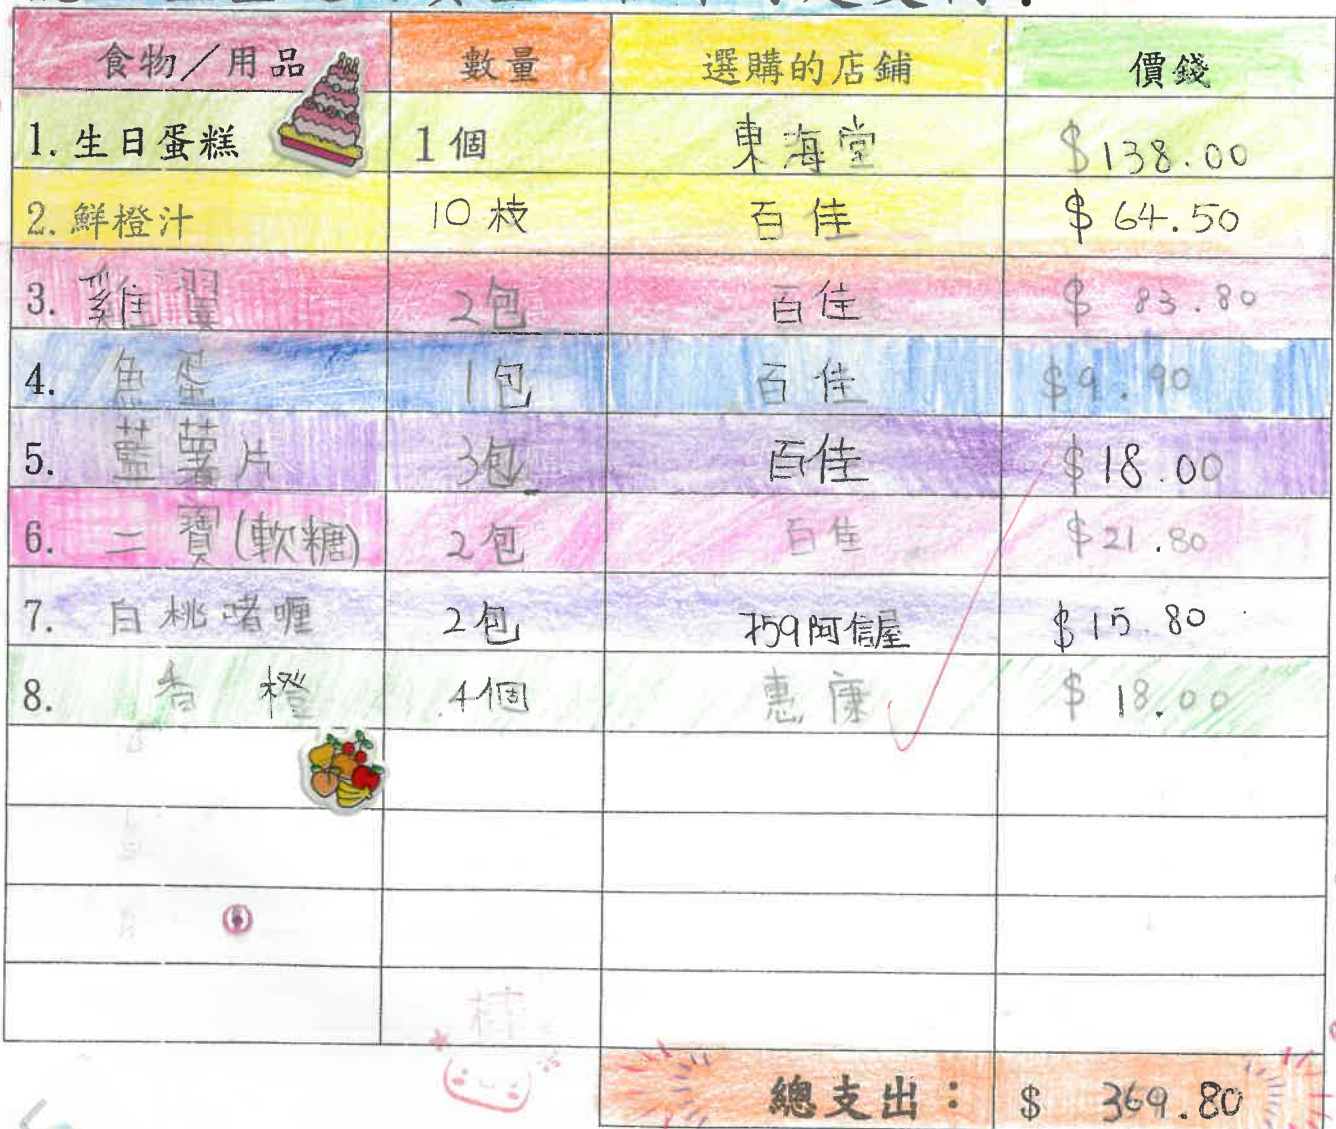 食物／用品 數量 選購的店鋪 價錢
1. 生日蛋糕 1個 東海堂 $138.00
2. 鮮橙汁 10枝 百佳 $64.50
3. 雞翼 2包 百佳 $ 83.80
4. 魚蛋 1包 百佳 $9.90
5. 藍薯片 3包 百佳 $18.00
6. 二寶(軟糖) 2包 百佳 $21.80
7. 白桃啫喱 2包 759阿信屋 $15.80
8. 香橙 4個 惠康 $18.00
總支出： $ 369.80